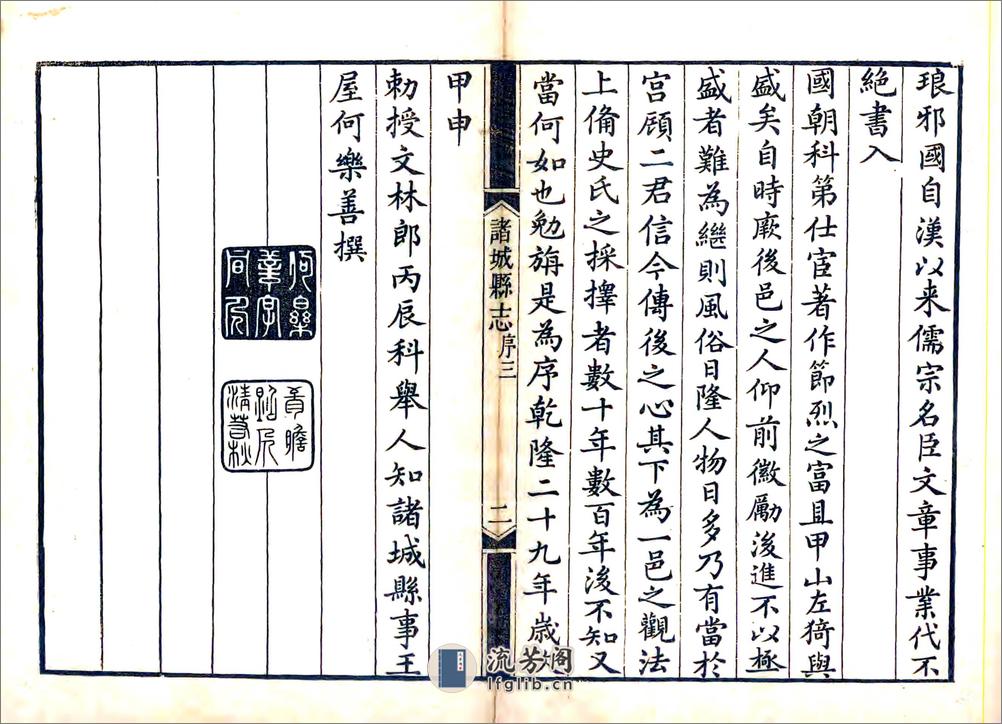 琅邪國自漢以来儒宗名臣文章事業代不
絶書入
國朝科第仕宦著作節烈之富且甲山左猗與
盛矣自時厥後邑之人仰前徽勵後進不以極
盛者難為繼則風俗日隆人物日多乃有當於
宫顧二君信今傳後之心其下為一邑之觀法
上備史氏之採擇者數十年數百年後不知又
當何如也勉旃是為序乾隆二十九年歲
諸城縣志
序三
二
甲申
勅授文林郎丙辰科舉人知諸城縣事王
屋何樂善撰
流芳阁
lfglib.cn